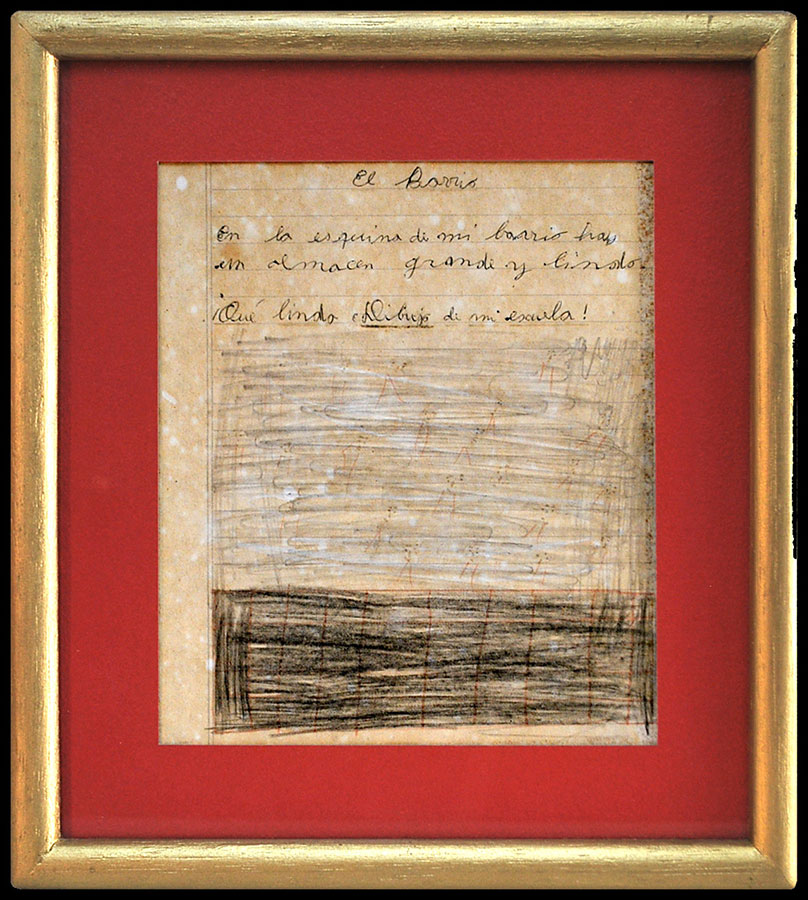 El Barrio
En la esquina de mi barrio hay
un almacen grande y lindo.
¡Qué lindo Dibujo de mi escuela!